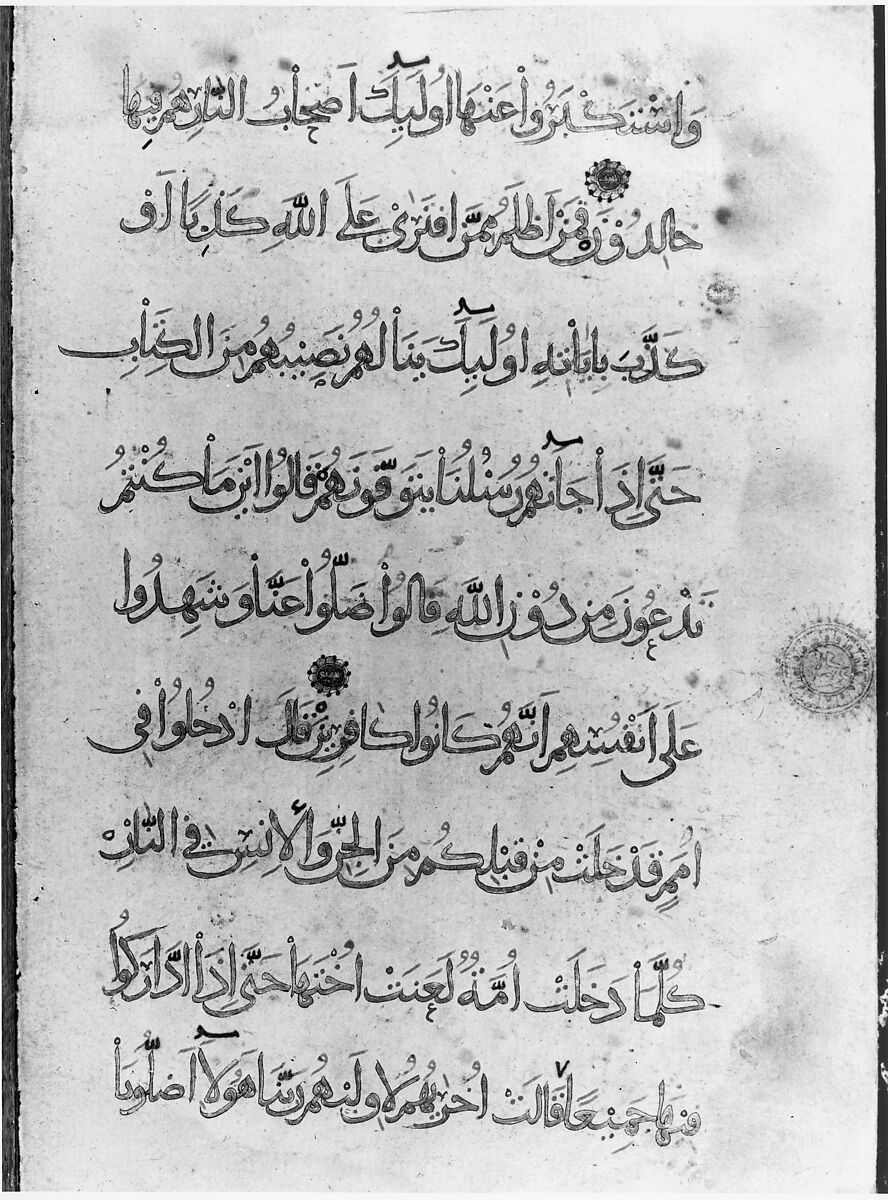 وَاسْتَكْبَرُواْ عَنْهَا اُولَٓئِكَ اَصْحَابُ النَّارِ هُمْ فِيهَا
خَالِدُوْنَ فَمَنْ اَظْلَمُ مِمَّنِ افْتَرٰىْ عَلَى اللّٰهِ كَذِبًا اَوْ
كَذَّبَ بِاٰيَاْتِهِ اُولَٓئِكَ يَنَاْلُهُمْ نَصِيبُهُمْ مِنَ الْكِتَاْبِ
حَتَّى اِذَاْ جَآتْهُمْ رُسُلُنَاْ يَتَوَفَّوْنَهُمْ قَالُوا اَيْنَ مَاْ كُنْتُمْ
تَدْعُوْنَ مِنْ دُوْنِ اللّٰهِ قَالُوْاْ ضَلُّواْ عَنَّاْ وَشَهِدُوا
عَلَى اَنْفُسِهِمْ اَنَّهُمْ كَانُوا كَافِرِيْنَ قَالَ ادْخُلُواْ فِى
اُمَمٍ قَدْ خَلَتْ مِنْ قَبْلِكُمْ مِنَ الْجِنِّ وَالْاِنْسِ فِى النَّاْرِ
كُلَّمَاْ دَخَلَتْ اُمَّةٌ لَعَنَتْ اُخْتَهَاْ حَتَّى اِذَاْ ادَّارَكُوا
فِيهَا جَمِيْعًا قَالَتْ اُخْرٰيهُمْ لِاُولٰيهُمْ رَبَّنَا هَؤُلَآ اَضَلُّونَاْ